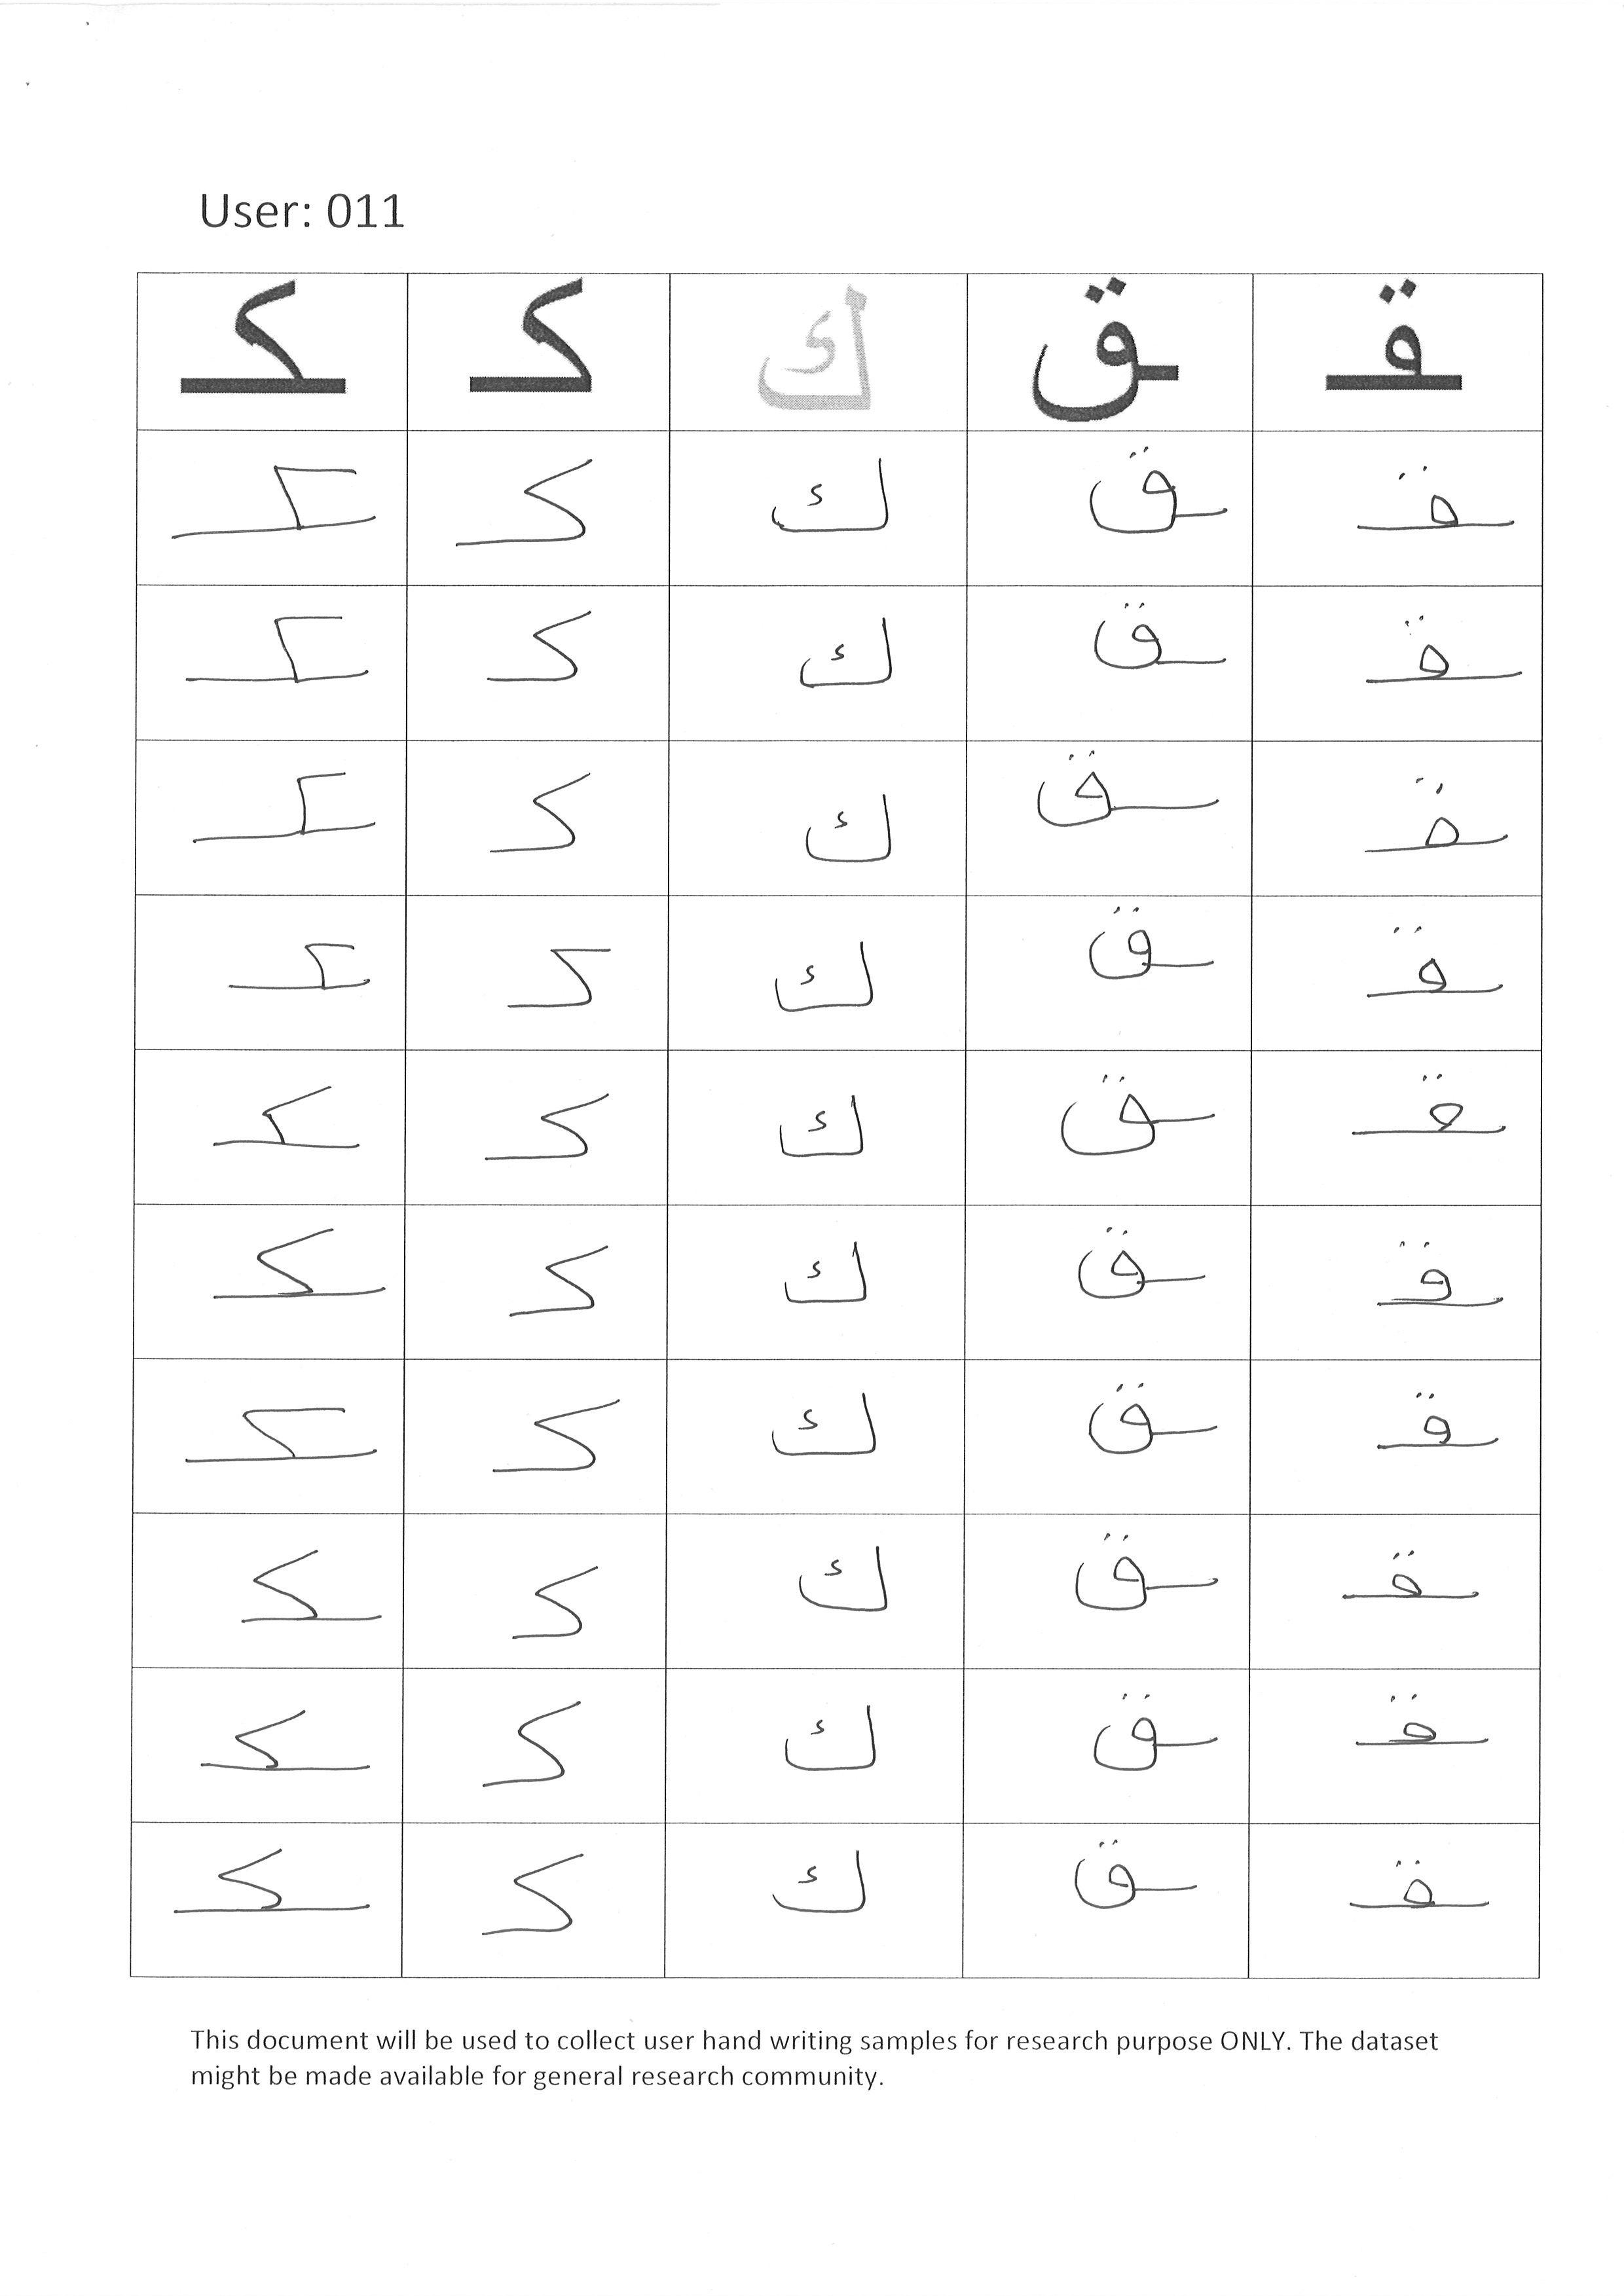 User: 011
ـقـ ـق ك كـ ـكـ
ـقـ ـق ك كـ ـكـ
ـقـ ـق ك كـ ـكـ
ـقـ ـق ك كـ ـكـ
ـقـ ـق ك كـ ـكـ
ـقـ ـق ك كـ ـكـ
ـقـ ـق ك كـ ـكـ
ـقـ ـق ك كـ ـكـ
ـقـ ـق ك كـ ـكـ
ـقـ ـق ك كـ ـكـ
ـقـ ـق ك كـ ـكـ
This document will be used to collect user hand writing samples for research purpose ONLY. The dataset
might be made available for general research community.